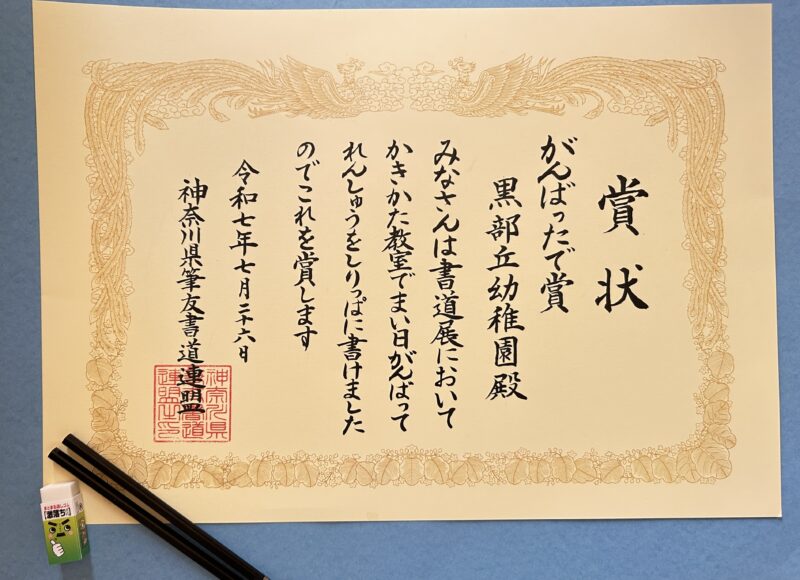 賞状
がんばったで賞
黒部丘幼稚園殿
みなさんは書道展において
かきかた教室でまい日がんばって
れんしゅうをしりっぱに書けました
のでこれを賞します
令和七年七月二十六日
神奈川県筆友書道連盟
激落ち